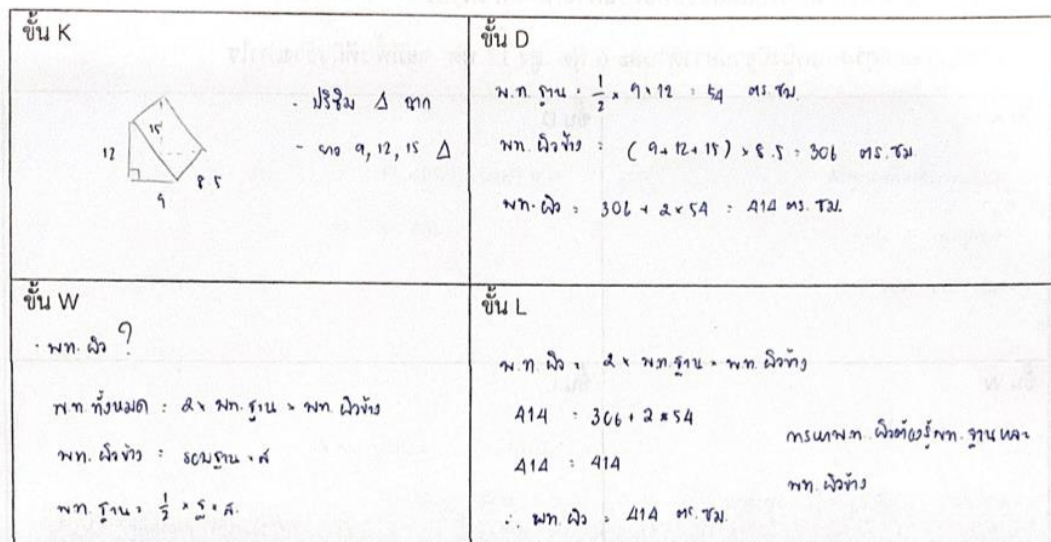 ขั้น K
- ปริซึม Δ ฉาก
- ยาว 9, 12, 15 Δ
12
15
9
8.5
ขั้น D
พ.ท. ฐาน = 1/2 × 9 × 12 = 54 ตร.ซม.
พท. ผิวข้าง = (9+12+15) × 8.5 = 306 ตร.ซม.
พท. ผิว = 306 + 2 × 54 = 414 ตร.ซม.
ขั้น W
- พท. ผิว ?
พท. ทั้งหมด = 2 × พท. ฐาน + พท. ผิวข้าง
พท. ผิวข้าง = รอบฐาน × ส
พท. ฐาน = 1/2 × ฐ × ส.
ขั้น L
พ.ท. ผิว = 2 × พท. ฐาน + พท. ผิวข้าง
414 = 306 + 2 × 54
414 = 414
∴ พท. ผิว = 414 ตร.ซม.
การหาพ.ท. ผิวต้องรู้พท. ฐานและ
พท. ผิวข้าง